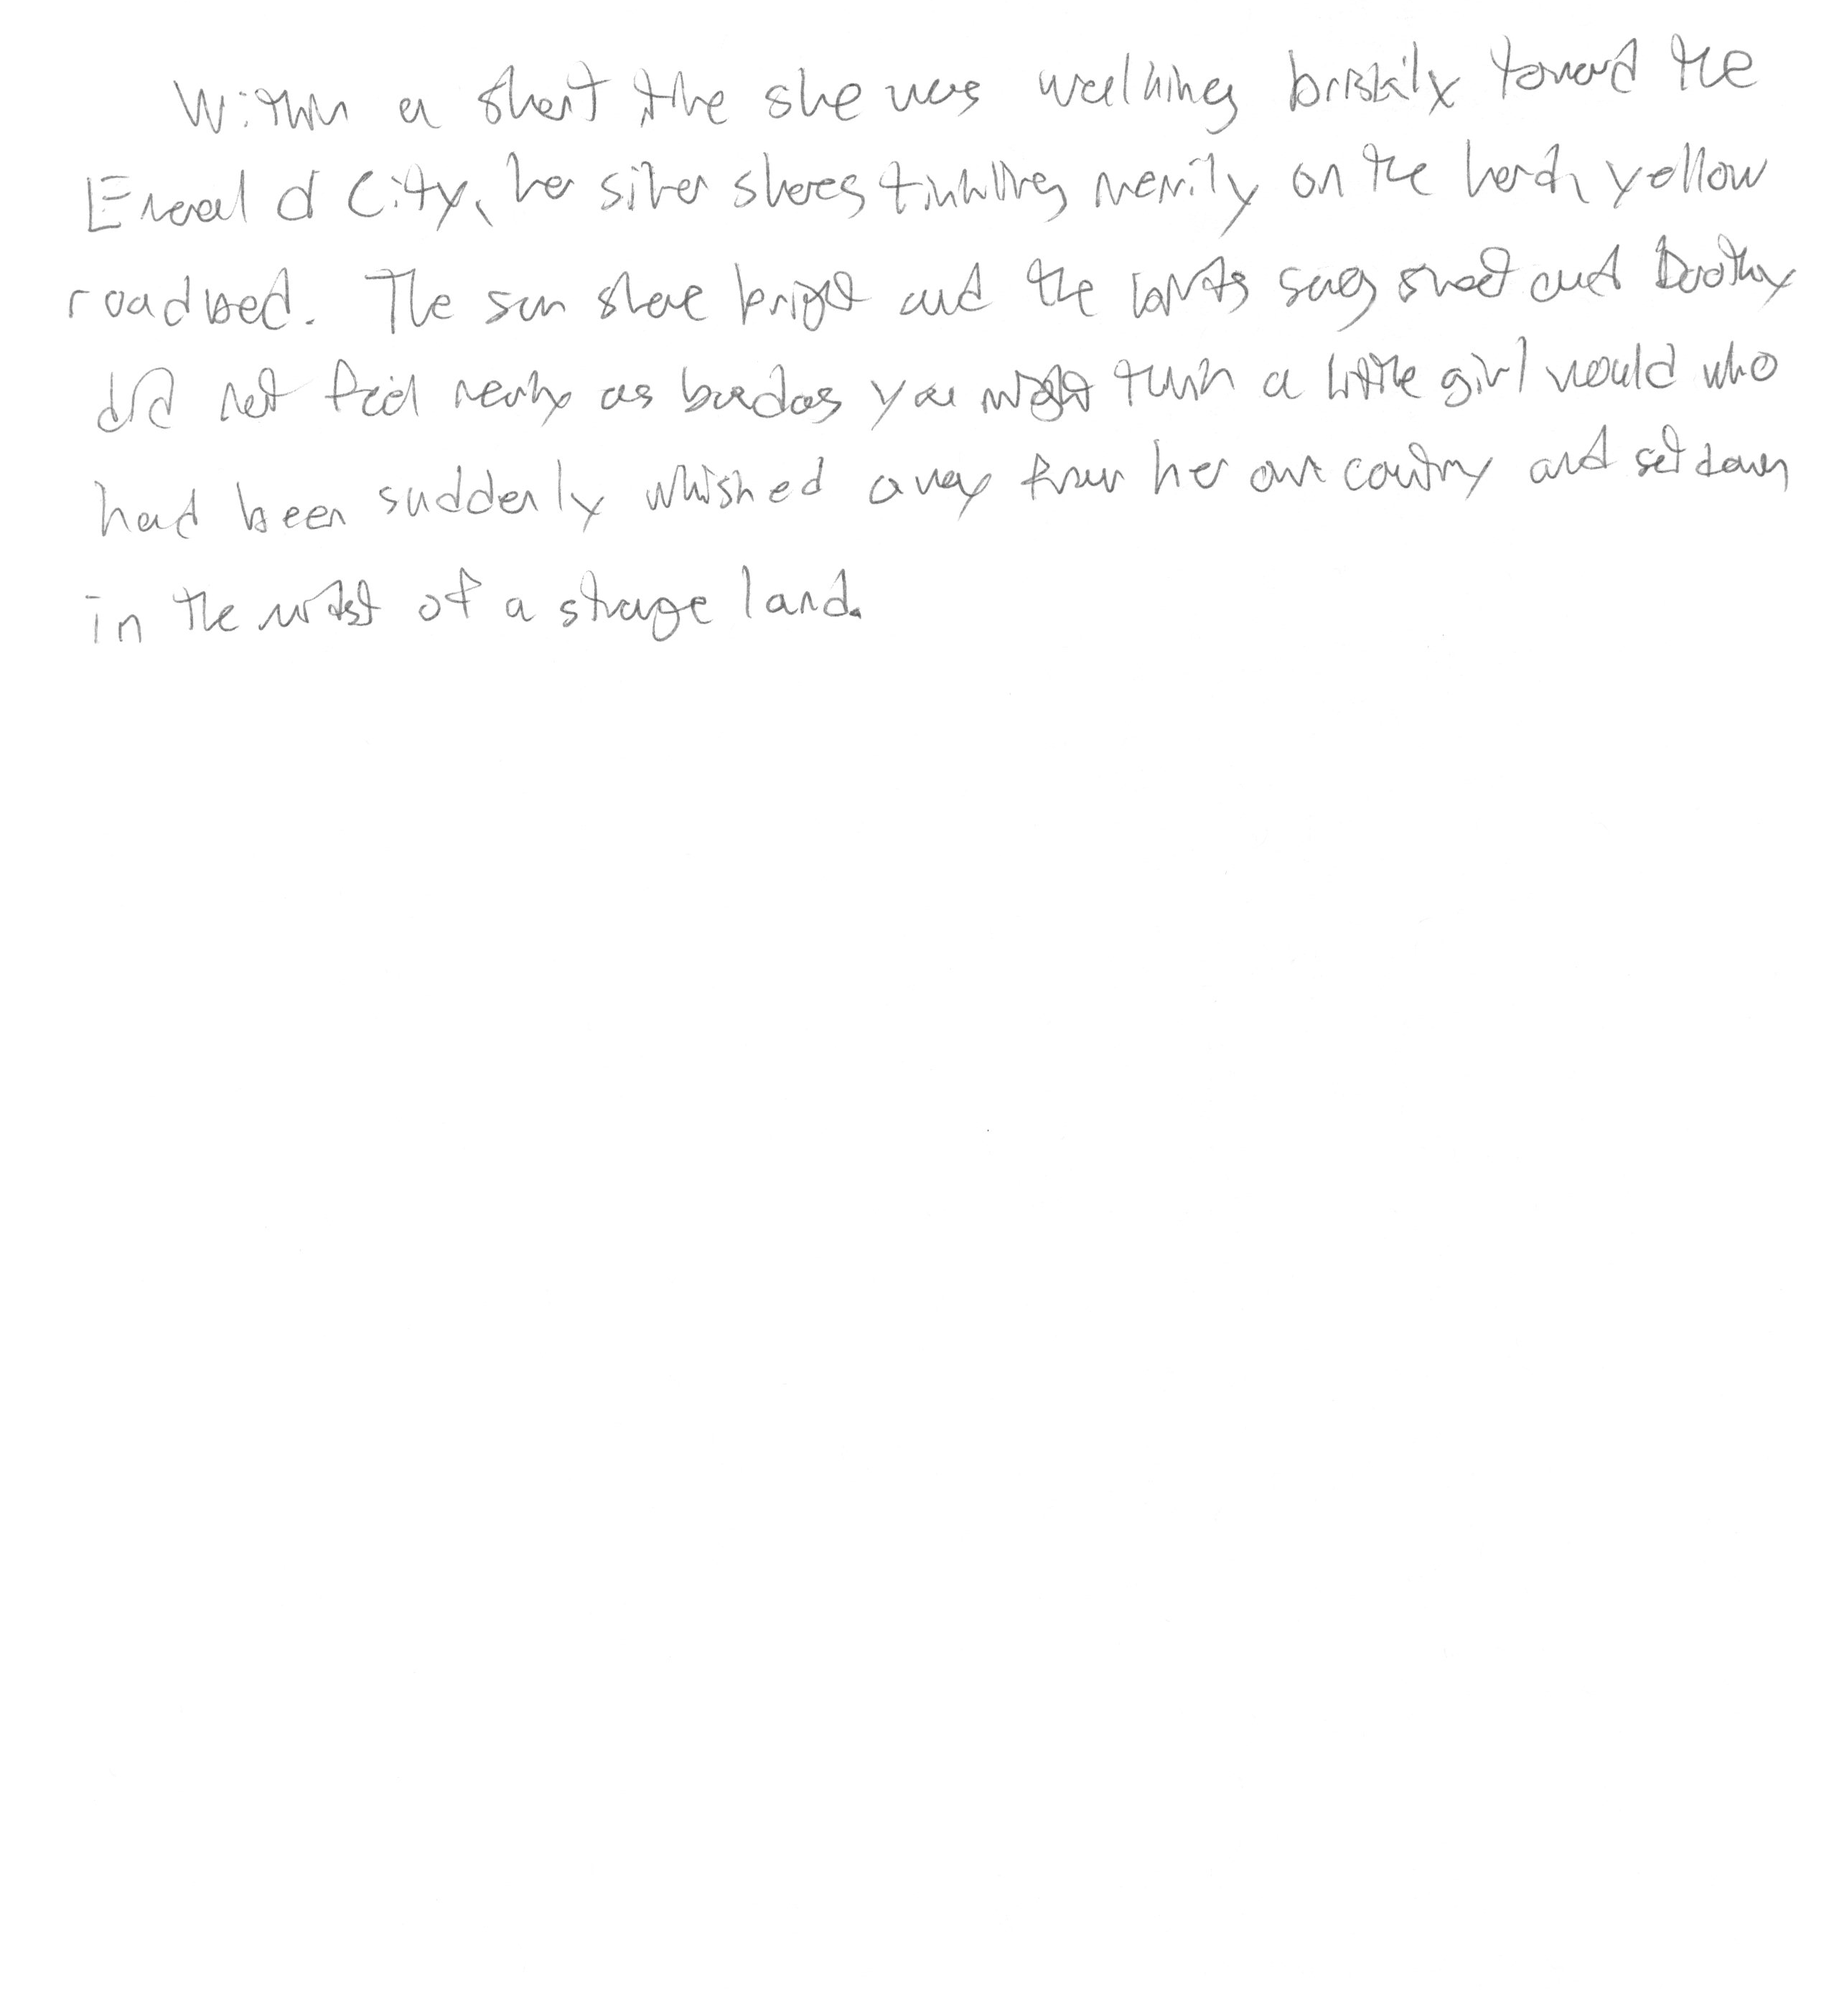 Within a short time she was walking briskily toward the
Emerald City, her silver shoes tinkling merrily on the hard yellow
roadbed. The sun shone bright and the birds sang sweet and Dorothy
did not feel nearly as bad as you might think a little girl would who
had been suddenly whished away from her own country and set down
in the midst of a strange land.